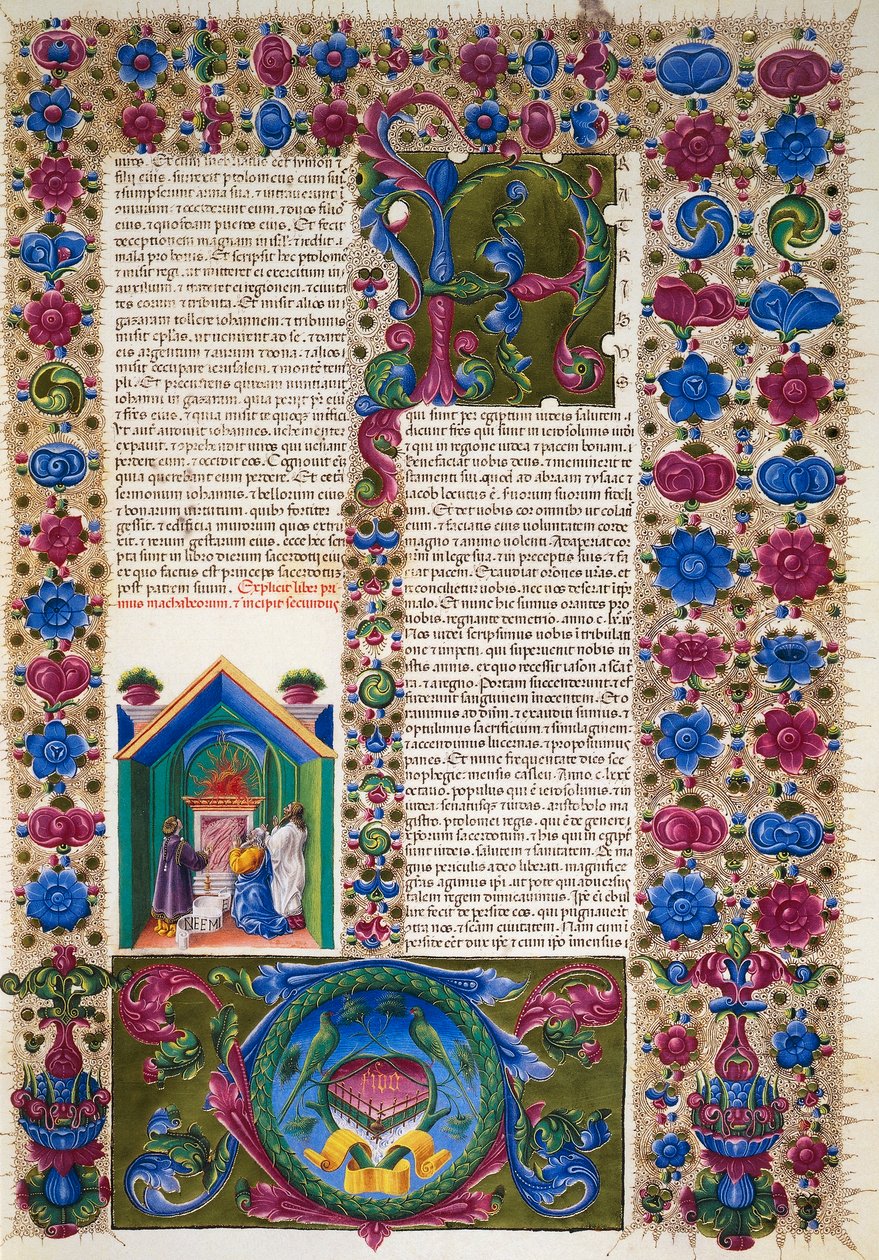 filii eius. surrexit ptolomeus cum suis
& sumpserunt arma sua. & intraverunt i
conuiuium. & occiderunt eum. & duos filios
eius. & quosdam pueros eius. Et fecit
deceptionem magnam in isrl. & reddidit
mala pro bonis. Et scripsit hec ptolomeus
& misit regi. ut mitteret ei exercitum in
auxilium. & traderet ei regionem. & ciuita
tes eorum & tributa. Et misit alios in
gazaram tollere iohannem. & tribunis
misit eplas. ut uenirent ad se. & daret
eis argentum & aurum & dona. & alios
misit occupare ierusalem. & montem tem
pli. Et precurrens quidam nuntiauit
iohanni in gazaram. quia perijt pr ei
& fres eius. & quia misit te quoque infici
Ut aut audiuit iohannes. uehementer
expauit. & prehendit uiros qui uenant
perdere eum. & occidit eos. Cognouit eni
quia querebant eum perdere. Et cetera
sermonum iohannis. & bellorum eius
& bonarum uirtutum. quib fortiter
gessit. & edificia murorum quos extru
xit. & rerum gestarum eius. ecce hec scri
pta sunt in libro dierum sacerdotij eius
ex quo factus est princeps sacerdotum
post patrem suum. Explicit liber pri
mus machabeorum. & incipit secundus
NEEMI
FRATRIBUS
qui sunt per egiptum iudeis salutem.
dicunt fres qui sunt in ierosolimis iudei
& qui in regione iudea & pacem bonam.
benefaciat uobis deus. & meminerit te
stamenti sui. quod ad abraam & ysaac &
iacob locutus e. seruorum suorum fideli
um. Et det uobis cor omnibus ut colatis
eum. & faciatis eius uoluntatem corde
magno & animo uolenti. Adaperiat cor
urm in lege sua. & in preceptis suis. & fa
ciat pacem. Exaudiat orones uras. et
reconcilietur uobis. nec uos deserat i tpr
malo. Et nunc hic sumus orantes pro
uobis. regnante demetrio. anno c.lx.ix
Nos iudei scripsimus uobis i tribulati
one & impetu. qui superuenit nobis in
istis annis. ex quo recessit iason a sca ter
ra. & a regno. Portam succenderunt & ef
fuderunt sanguinem innocentem. Et o
rauimus ad dnm. & exauditi sumus. &
optulimus sacrificium & similaginem
& accendimus lucernas. & proposuimus
panes. Et nunc frequentate dies sce
nophegie. mensis casleu. Anno c.lxxx
octauo. populus qui e ierosolimis. & in
iudea. senatusq & iudas. aristobolo ma
gistro. ptolomei regis. qui e de genere
xporum sacerdotum. & his qui in egipto
sunt iudeis. salutem & sanitatem. De ma
gnis periculis a deo liberati. magnifice
gras agimus ipi. ut pote qui aduersus
talem regem dimicauimus. Ipe ei ebul
lire fecit de perside eos. qui pugnauerunt
contra nos. & scam ciuitatem. Nam cum
perside eet dux ipe. & cum ipo immensus
FIDO